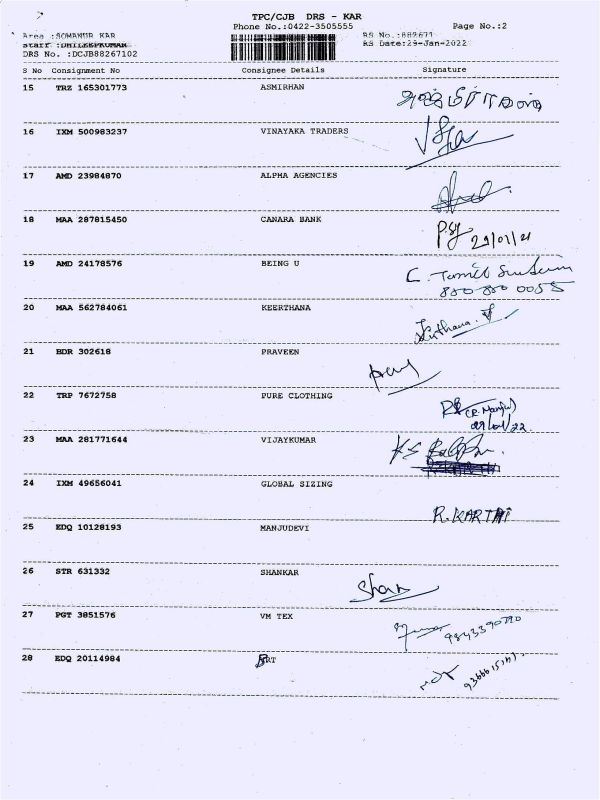 TPC/CJB DRS - KAR
Phone No.:0422-3505555 Page No.:2
Area :SOMANUR KAR RS No.:882671
Staff :DHILEEPKUMAR RS Date:29-Jan-2022
DRS No. :DCJB88267102
S No Consignment No Consignee Details Signature
15 TRZ 165301773 ASMIRHAN
16 IXM 500983237 VINAYAKA TRADERS
17 AMD 23984870 ALPHA AGENCIES
18 MAA 287815450 CANARA BANK
29/01/21
19 AMD 24178576 BEING U
C. Tamil
850 850 0055
20 MAA 562784061 KEERTHANA
Keerthana
21 BDR 302618 PRAVEEN
22 TRP 7672758 PURE CLOTHING
29/01/22.
23 MAA 281771644 VIJAYKUMAR
24 IXM 49656041 GLOBAL SIZING
R. KARTHI
25 EDQ 10128193 MANJUDEVI
26 STR 631332 SHANKAR
27 PGT 3851576 VM TEX
28 EDQ 20114984 BRT